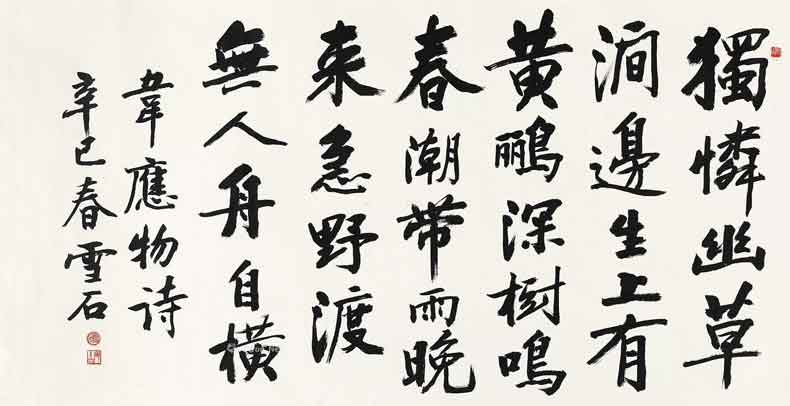 獨憐幽草
澗邊生上有
黃鸝深樹鳴
春潮帶雨晚
來急野渡
無人舟自橫
韋應物詩
辛巳春雪石